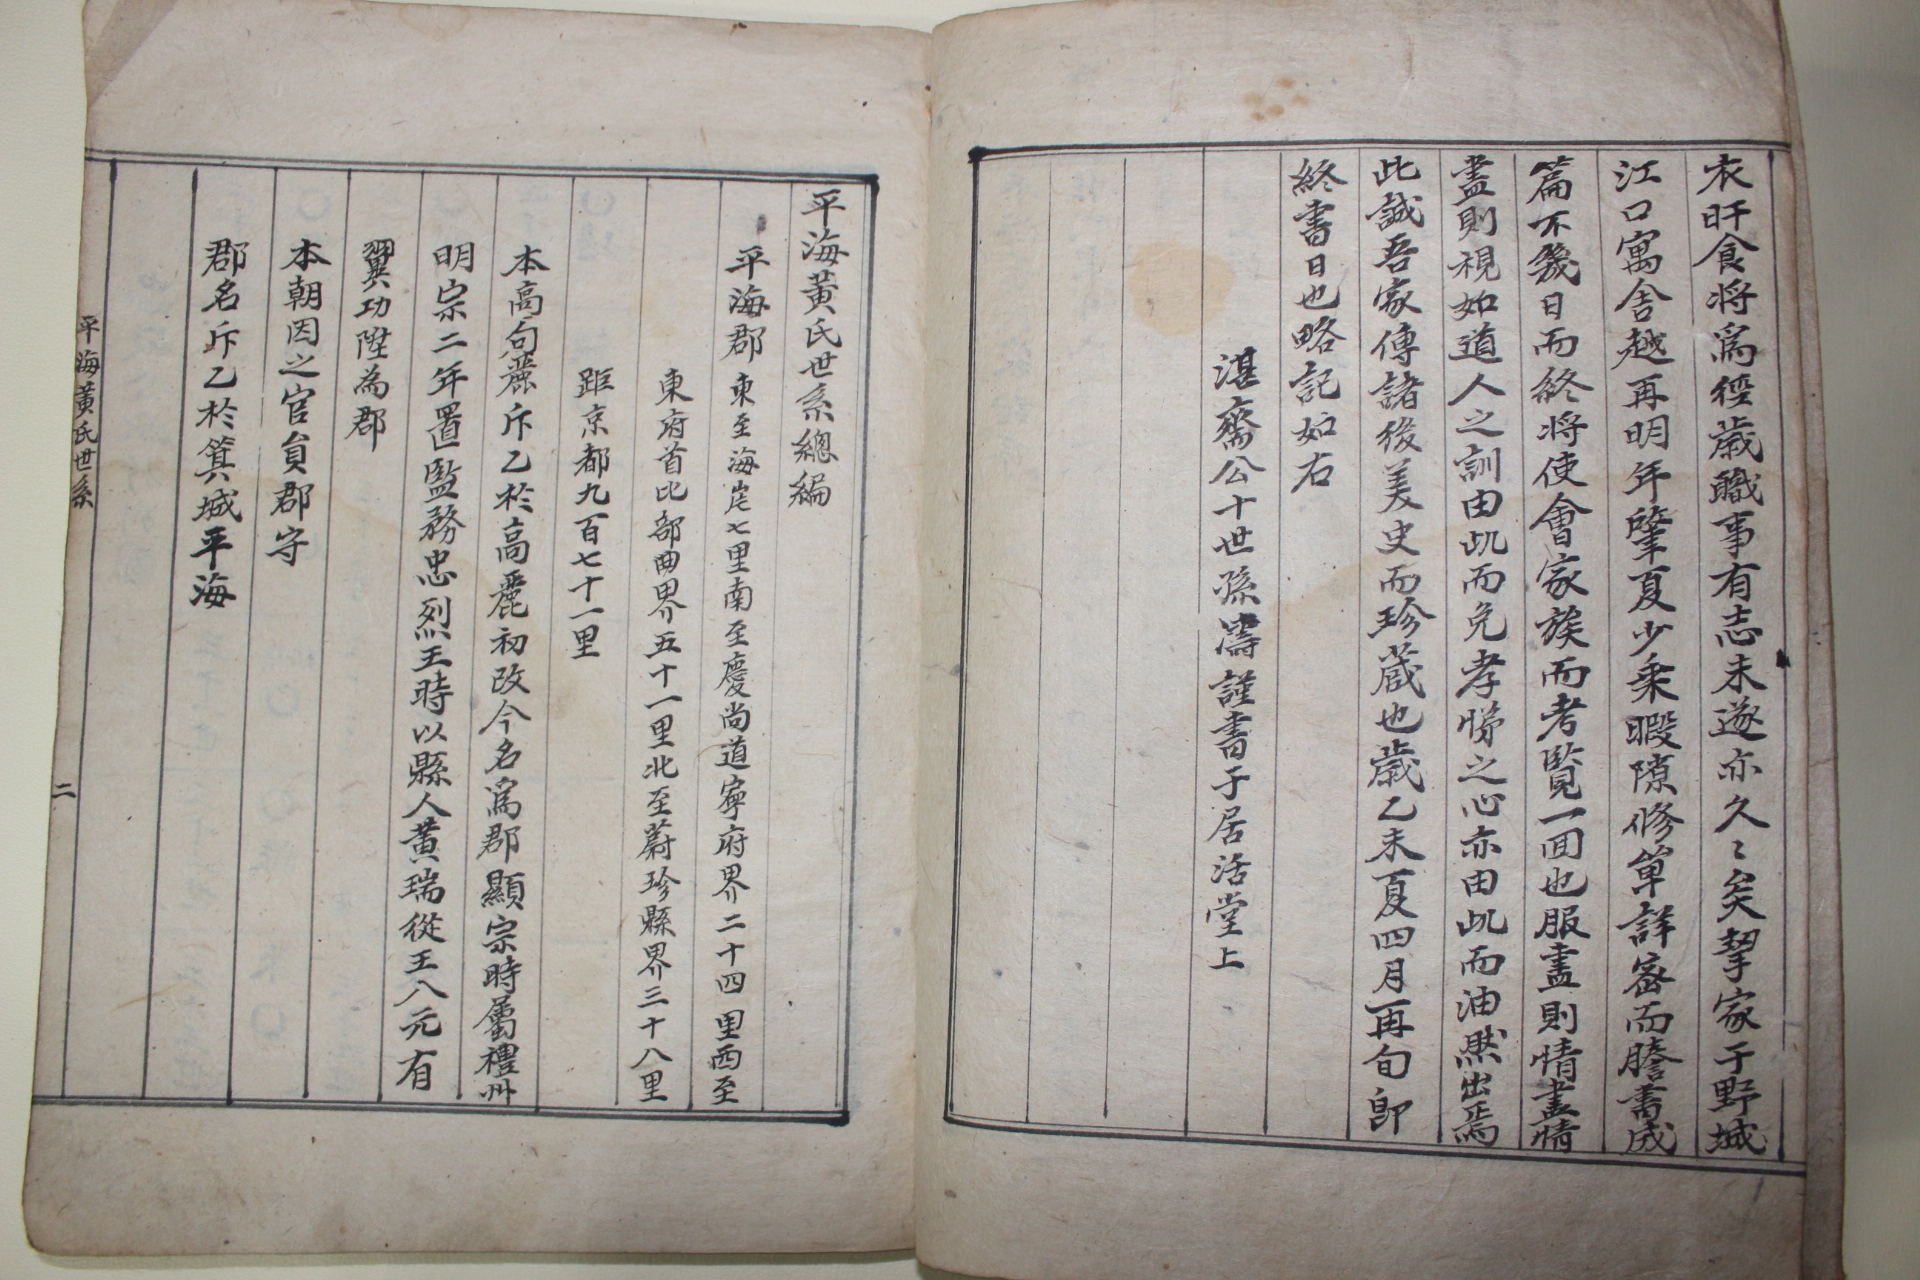 衣旰食将爲經歲職事有志未遂亦久〻矣挈家于野城
江口寓舍越再明年肇夏少乘暇隙修單詳密而謄書成
篇不幾日而終将使會家族而考覧一囬也服盡則情盡情
盡則視如道人之訓由此而免孝悌之心亦由此而油然出焉
此誠吾家傳諸後美史而珍蔵也歲乙未夏四月再旬卽
終書日也略記如右
湛齋公十世孫濤謹書于居活堂上
平海黄氏世系總編
平海郡 東至海岸七里南至慶尚道寧府界二十四里西至
東府首比部曲界五十一里北至蔚珍縣界三十八里
距京都九百七十一里
本高句麗斥乙於高麗初改今名爲郡顯宗時屬禮州
明宗二年置監務忠烈王時以縣人黄瑞從王八元有
翼功陞為郡
本朝因之官員郡守
郡名斥乙於箕城平海
平海黄氏世系
二